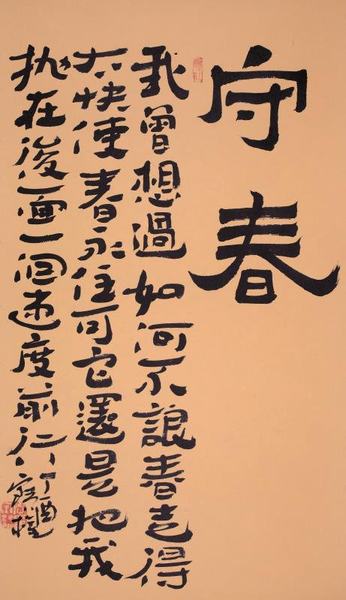 守春
我曾想過如何不誏春走得
太快使春永住可它還是把我
抛在後面一個速度前行丁酉